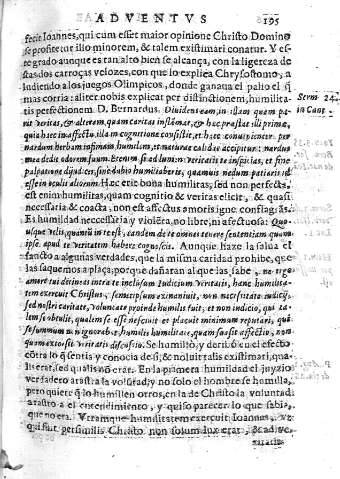 ADVENTVS 195
fecit Ioannes, qui cum esset maior opinione Christo Domino
se profitetur illo minorem, & talem existimari conatur. Y es-
te grado aunque es tan alto bien se alcança, con la ligereza de
estas dos carroças velozes, con que lo explica Chrysostomo, a
ludiendo a los juegos Olimpicos, donde ganaua el palio el q̃
mas corria: aliter nobis explicat per distinctionem, humilita-
tis perfectionem D. Bernardus. Diuident eam, in illam quam pa-
rit veritas, & alteram, quam caritas inflamat, & hæc prastat illi prima,
quia hæc in affectu, illa in cognitione consistit, et
nardum herbam infimam humilem, et naturæ calidæ accipitur: nardus
mea dedit odorem suum. Etenim si
palpatione dijudices, sine dubio humiliaberis, quamuis nedum patiaris id
esse in oculis aliorum. Hæc etiè bona humilitas, sed non perfecta,
est enim humilitas, quam cognitio & veritas elicit, & quasi
necessaria & coacta, non est affectus amoris igne conflagrãs.
Es humildad neccessaria y violẽta, no libre, ni afectuosa: Quo-
usque
ipse. apud te veritatem habere cognoscis. Aunque haze la salua el
sancto a algunas verdades, que la misma caridad prohibe, que
las saquemos a plaça, porque dañaran al que las sabe,
amore tui detineas intra te inclusum Iudicium veritatis, hanc humilita-
tem exercuit Christus, semetipsum exinaniuit, non necessitate iudicij,
sed nostri caritate, voluntate proinde humilis fuit, et non iudicio, qui ta-
lem se obtulit, qualem se esse nesciuit et placuit minimum reputari, qui
se summum nõ ignorabat, humilis humilitate, quam suasit affectio, non
quam extorsit veritatis discussio. Se humilto, y derribó cu el efecto
cõtra lo q̃ sentia y conocia de si; & noluit talis existimari, qua-
lis erat, sed qualis nõ erat. En la primera humildad el juyzio
verdadero arastra la volũtad, y no solo el hombre se humilla,
pero quiere q̃ lo humillen otros, en la de Christo la voluntad
arastro a el entendimiento, y quiso parecer lo que sabia,
que no era. Vtramque humilitatem exercuit Ioannes,
qui fuit persimilis Christo non solum lux erat, & adve-
Serm 24.
in Cant